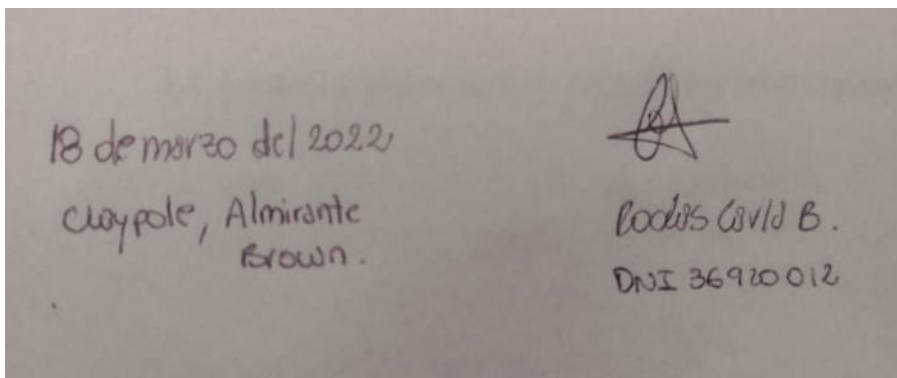 18 de marzo del 2022
Claypole, Almirante
Brown.
B.
DNI 36920012